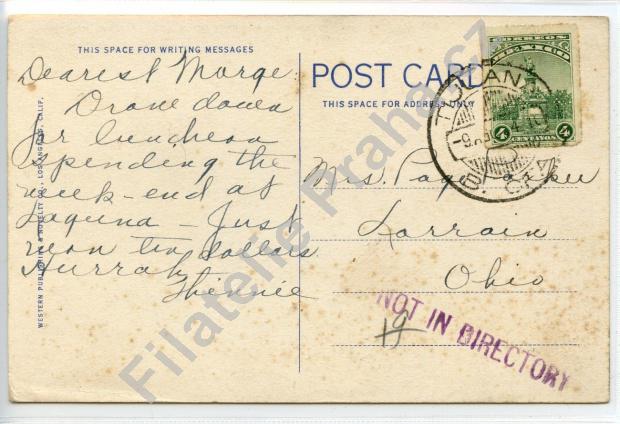 THIS SPACE FOR WRITING MESSAGES
Dearest Marge
Drove down
for luncheon
spending the
week-end at
Laguna - Just
won ten dollars
Hurrah
POST CARD
THIS SPACE FOR ADDRESS ONLY
CORREOS
4 CENTAVOS 4
B. CFA
Mrs. Page
Lorrain
Ohio
NOT IN DIRECTORY
19
WESTERN PUBLISHING & NOVELTY CO., LOS ANGELES, CALIF.
Filatelie Praha.cz